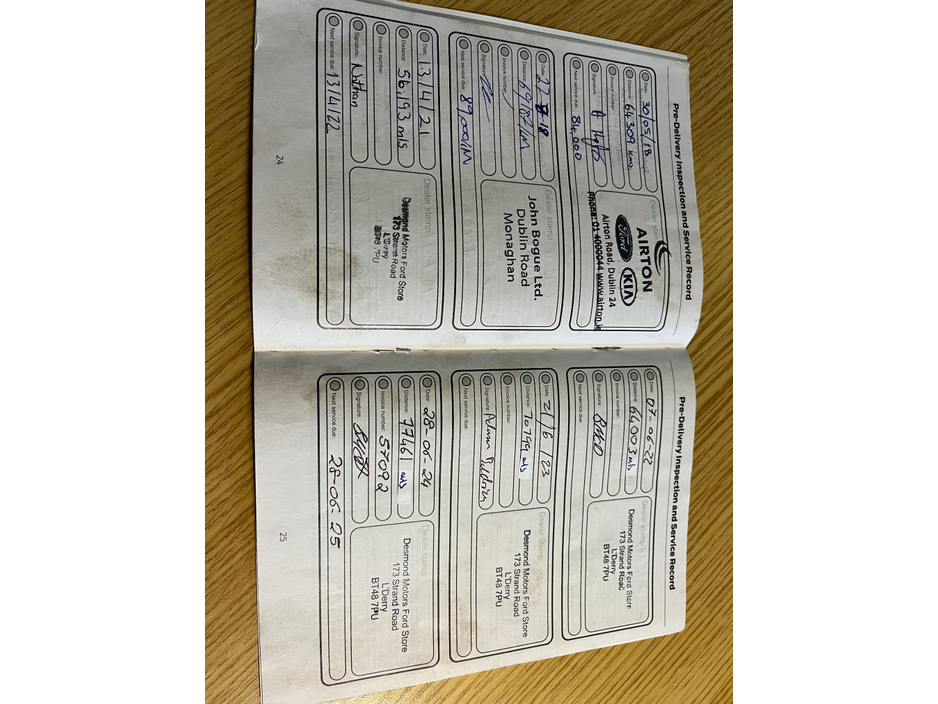 Pre-Delivery Inspection and Service Record
Date: 30/05/18
Distance: 64 309 kms
Invoice number:
Signature:
Next service due: 84 000
Dealer stamp
AIRTON
Ford KIA
Airton Road, Dublin 24
Phone: 01 4000044 www.airton.ie
Date:
Distance:
Invoice number:
Signature:
Next service due: 89,000KM
Dealer stamp
John Bogue Ltd.
Dublin Road
Monaghan
Date: 13/4/21
Distance: 56,193 mls
Invoice number:
Signature: Nathan
Next service due: 13/4/22
Dealer stamp
Desmond Motors Ford Store
173 Strand Road
L'Derry
BT48 7PU
24
Pre-Delivery Inspection and Service Record
Date: 07-06-22
Distance: 64003 mls
Invoice number:
Signature:
Next service due:
Dealer stamp
Desmond Motors Ford Store
173 Strand Road
L'Derry
BT48 7PU
Date: 2/6/23
Distance: 70799 mls
Invoice number:
Signature: Adam
Next service due:
Dealer stamp
Desmond Motors Ford Store
173 Strand Road
L'Derry
BT48 7PU
Date: 28-06-24
Distance: 77461 mls
Invoice number: 57092
Signature:
Next service due: 28-06-25
Dealer stamp
Desmond Motors Ford Store
173 Strand Road
L'Derry
BT48 7PU
25